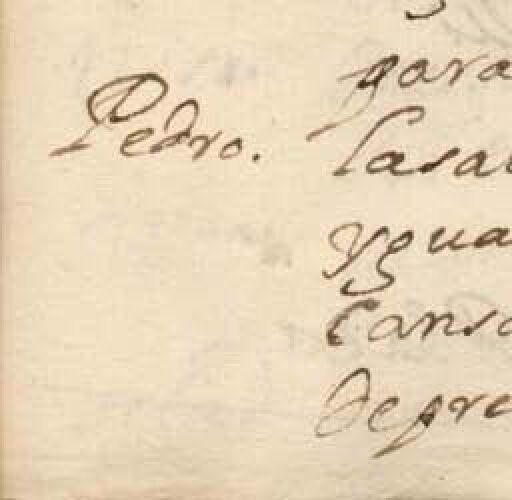 Pedro.
para
Casa
ygua
Cons
depre